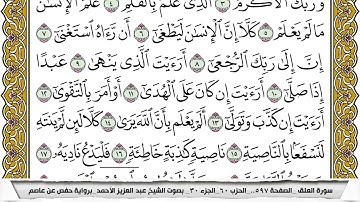 وَرَبُّكَ ٱلْأَكْرَمُ ٣ ٱلَّذِى عَلَّمَ بِٱلْقَلَمِ ٤ عَلَّمَ ٱلْإِنسَٰنَ
مَا لَمْ يَعْلَمْ ٥ كَلَّآ إِنَّ ٱلْإِنسَٰنَ لَيَطْغَىٰٓ ٦ أَن رَّءَاهُ ٱسْتَغْنَىٰٓ ٧
إِنَّ إِلَىٰ رَبِّكَ ٱلرُّجْعَىٰٓ ٨ أَرَءَيْتَ ٱلَّذِى يَنْهَىٰ ٩ عَبْدًا
إِذَا صَلَّىٰٓ ١٠ أَرَءَيْتَ إِن كَانَ عَلَى ٱلْهُدَىٰٓ ١١ أَوْ أَمَرَ بِٱلتَّقْوَىٰٓ ١٢
أَرَءَيْتَ إِن كَذَّبَ وَتَوَلَّىٰٓ ١٣ أَلَمْ يَعْلَم بِأَنَّ ٱللَّهَ يَرَىٰ ١٤ كَلَّا لَئِن لَّمْ يَنتَهِ
لَنَسْفَعًۢا بِٱلنَّاصِيَةِ ١٥ نَاصِيَةٍ كَٰذِبَةٍ خَاطِئَةٍ ١٦ فَلْيَدْعُ نَادِيَهُۥ ١٧
سورة العلق_ الصفحة ٥٩٧... الحزب ٦٠_ الجزء ٣٠_ بصوت الشيخ عبد العزيز الاحمد_ برواية حفص عن عاصم